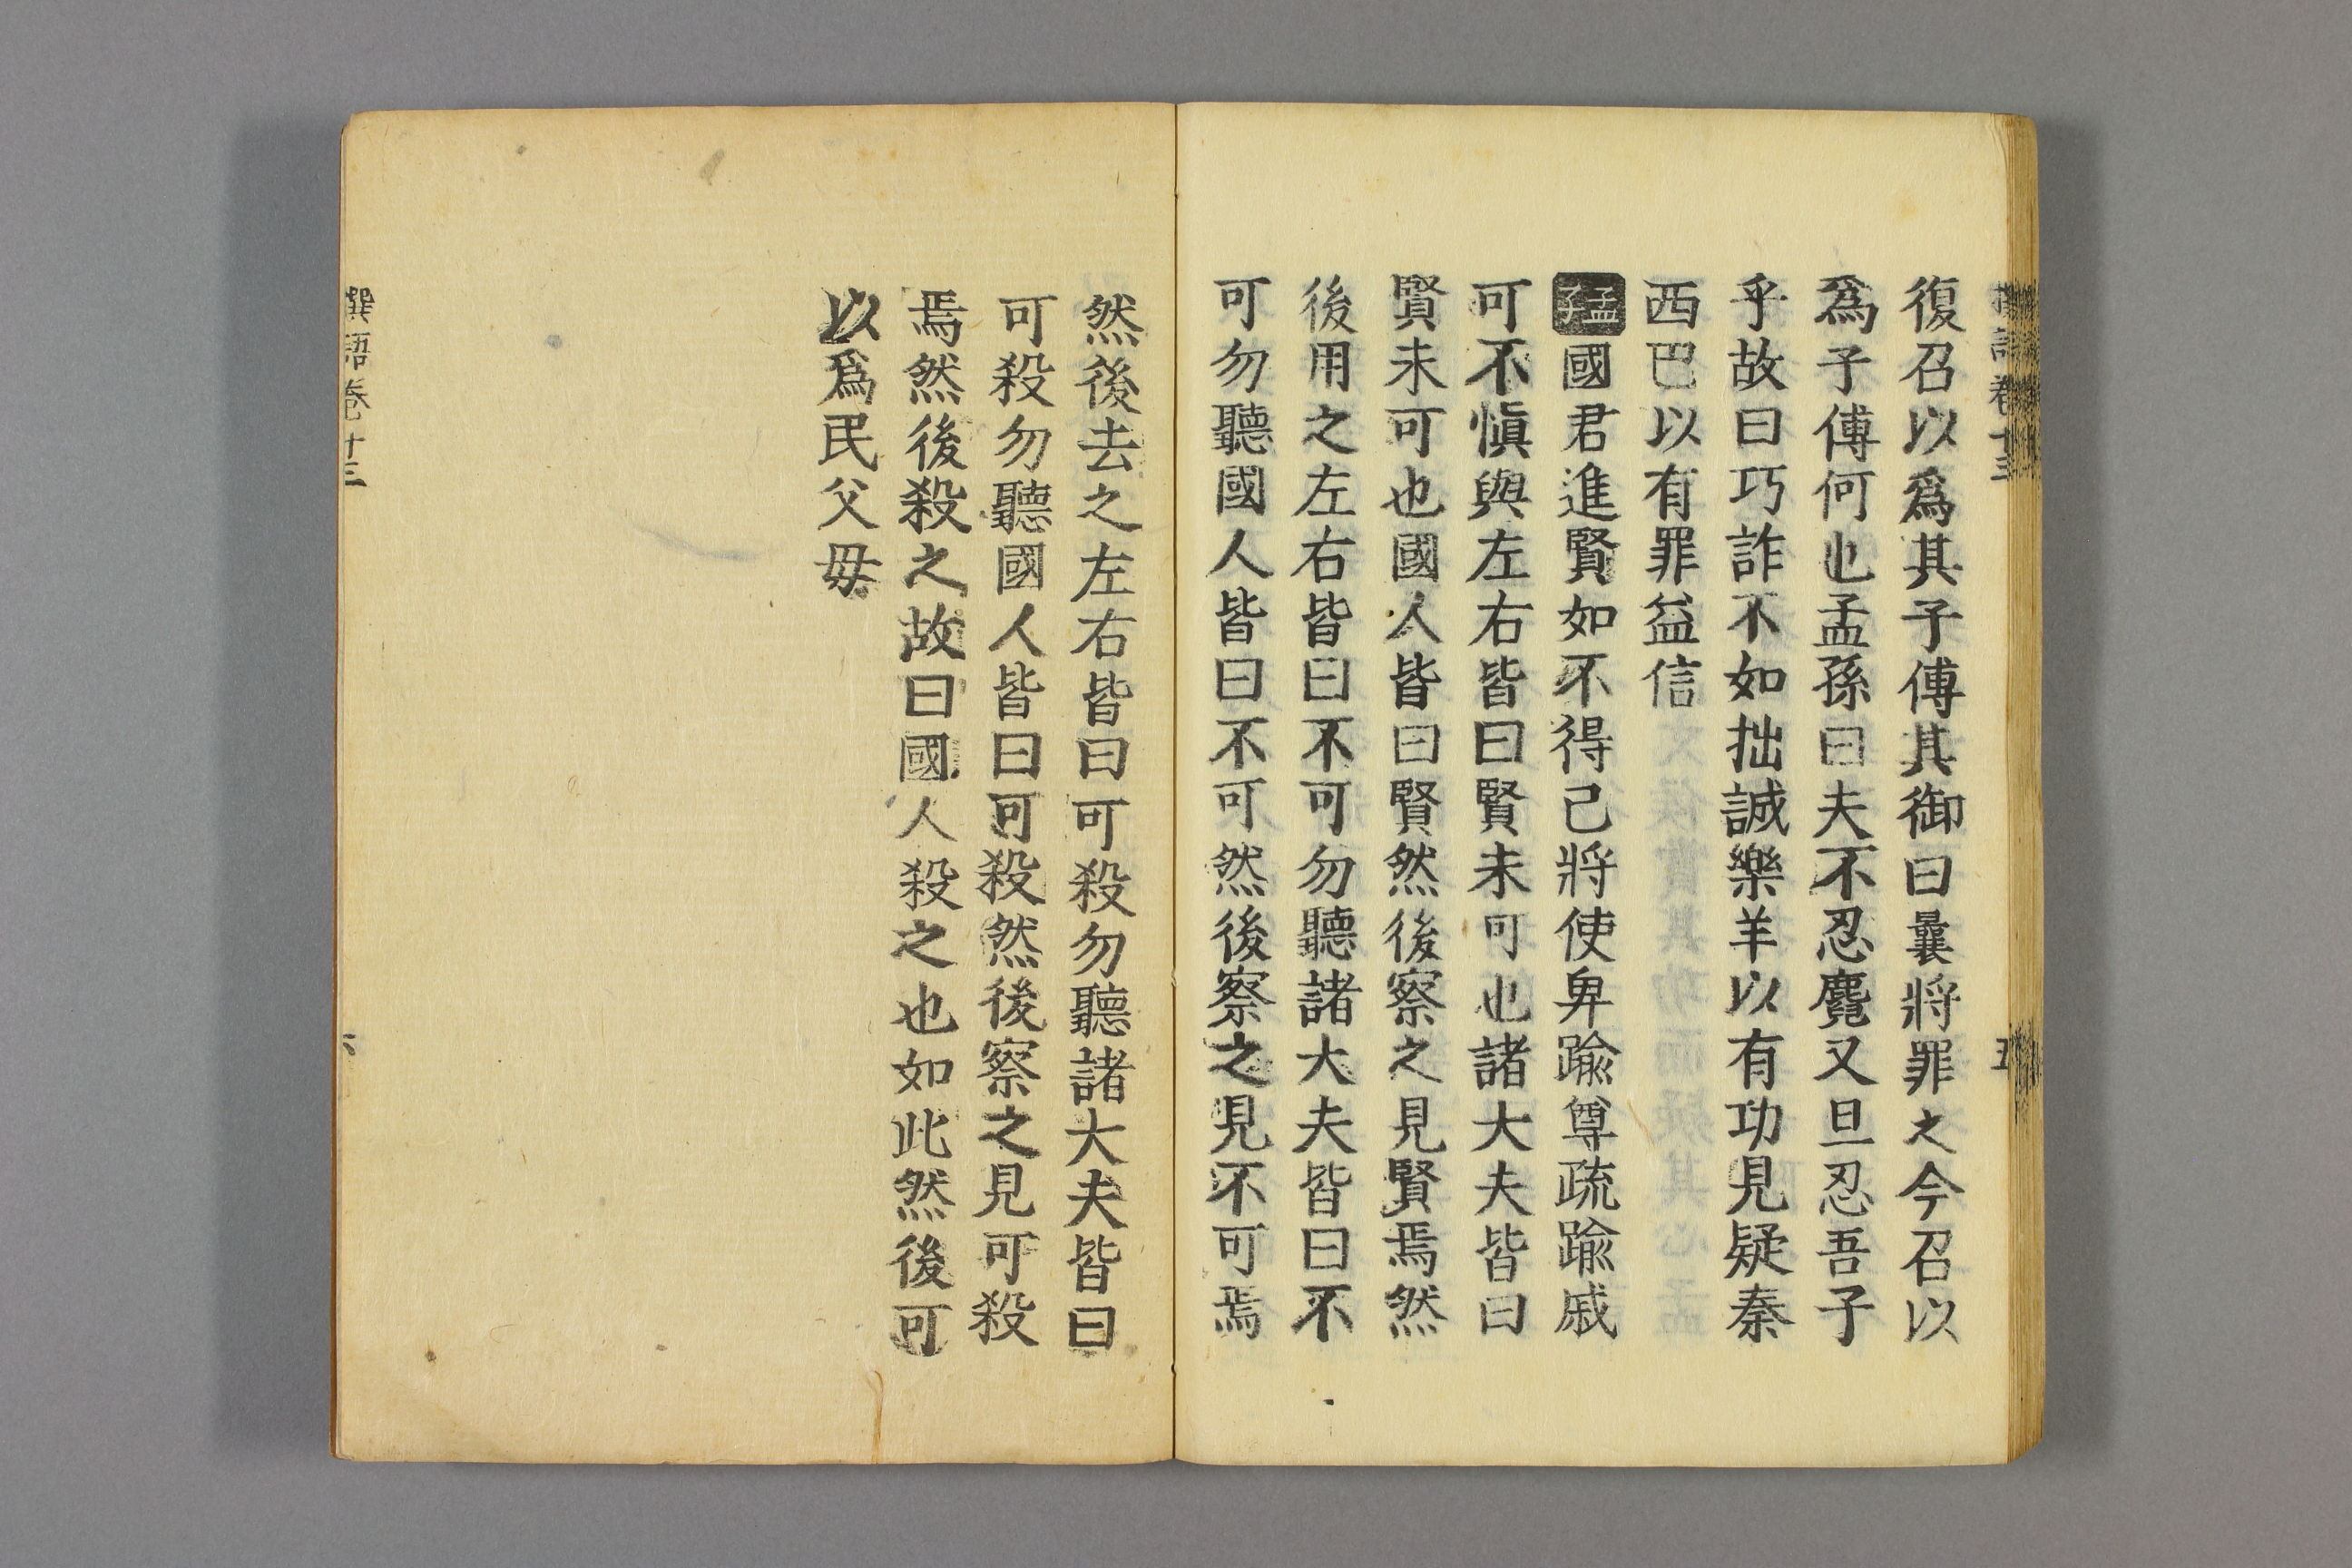 復召以爲其子傅其御曰曩將罪之今召以
爲子傅何也孟孫曰夫不忍麑又且忍吾子
乎故曰巧詐不如拙誠樂羊以有功見疑秦
西巴以有罪益信
孟子國君進賢如不得已將使卑踰尊疏踰戚
可不愼與左右皆曰賢未可也諸大夫皆曰
賢未可也國人皆曰賢然後察之見賢焉然
後用之左右皆曰不可勿聽諸大夫皆曰不
可勿聽國人皆曰不可然後察之見不可焉
然後去之左右皆曰可殺勿聽諸大夫皆曰
可殺勿聽國人皆曰可殺然後察之見可殺
焉然後殺之故曰國人殺之也如此然後可
以爲民父母
撰語卷十三
六